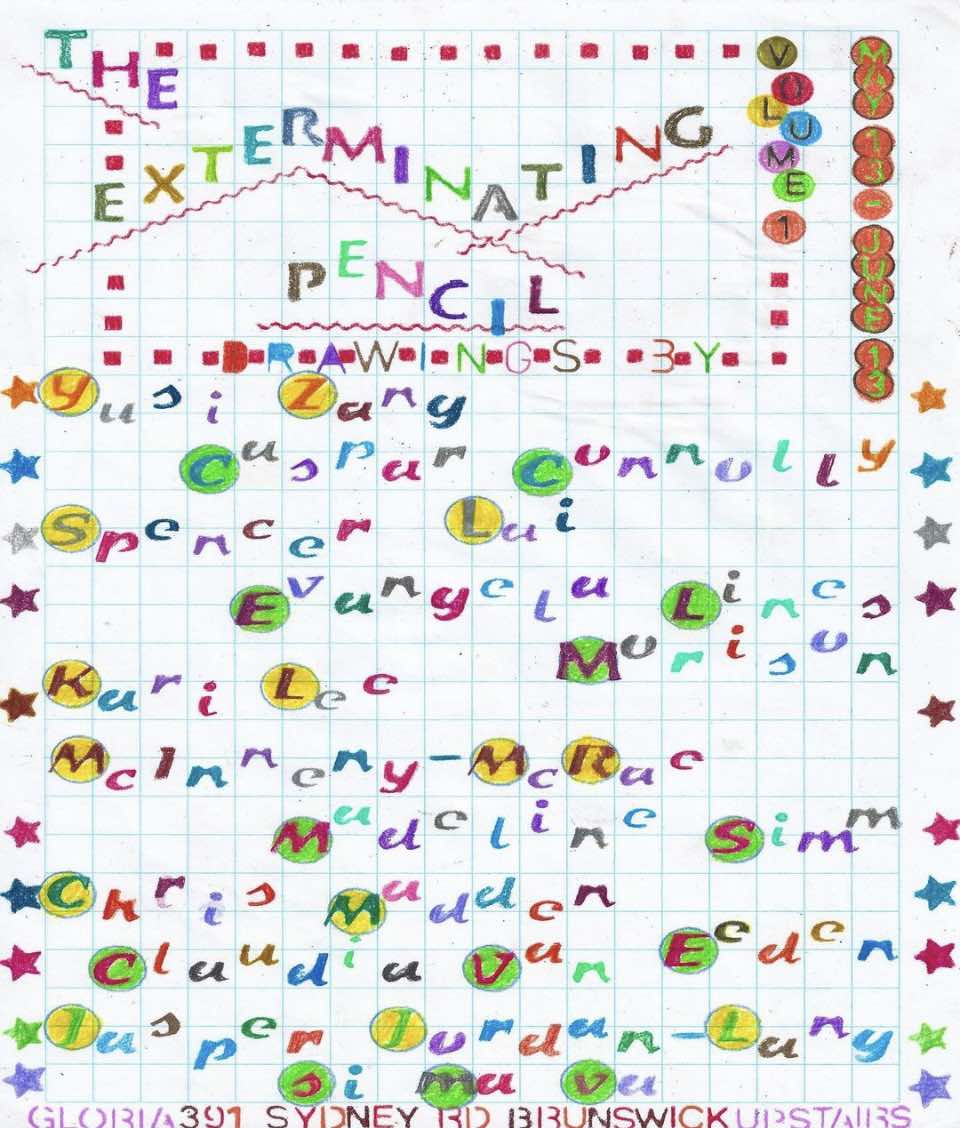 THE
EXTERMINATING
PENCIL
VOLUME 1
MAY 13 - JUNE 13
DRAWINGS BY
Yusi Zang
Caspar Connolly
Spencer Lai
Evangela Lines
Morison
Kari Lee
McInneny-McRae
Madeline Simm
Chris Madden
Claudia Van Eeden
Jasper Jordan-Lang
si ma va
GLORIA 391 SYDNEY RD BRUNSWICK UPSTAIRS